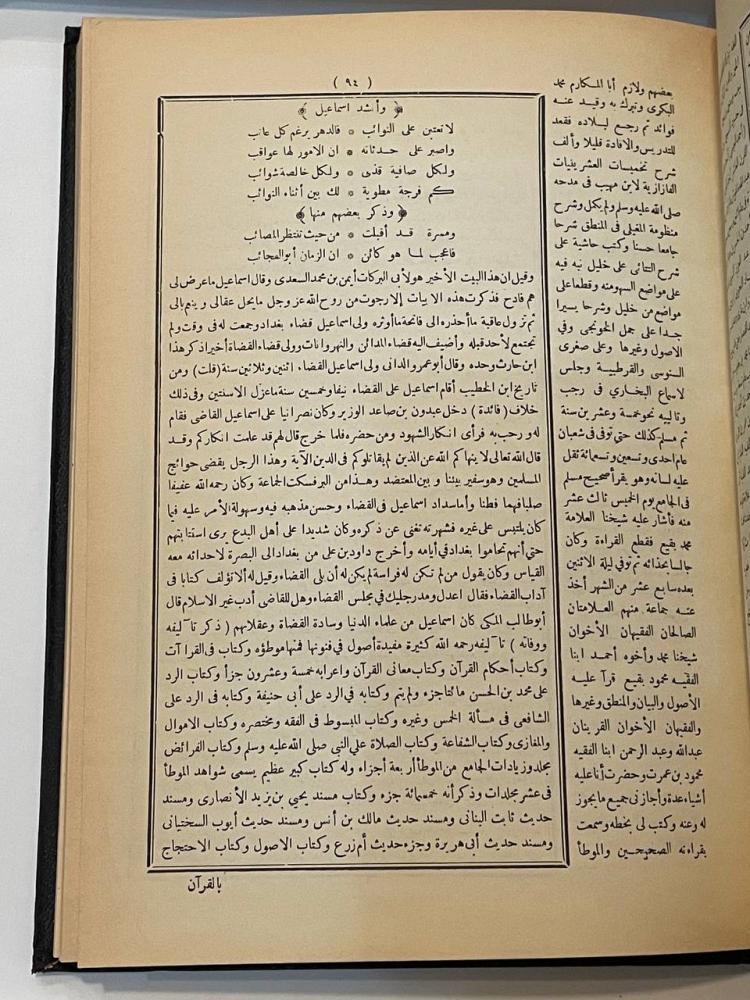 ( ٩٤ )
﴿ وأنشد اسماعيل ﴾
لا تعتبن على النوائب * فالدهر يرغم كل عاتب
واصبر على حدثانه * ان الامور لها عواقب
ولكل صافية قذى * ولكل خالصة شوائب
كم فرجة مطوية * لك بين أثناء النوائب
﴿ وذكر بعضهم منها ﴾
ومسرة قد أقبلت * من حيث تنتظر المصائب
فاعجب لما هو كائن * ان الزمان أبو العجائب
وقيل ان هذا البيت الأخير هو لأبى البركات أيمن بن محمد السعدى وقال اسماعيل ما عرض لى
هم فادح فذكرت هذه الابيات إلا رجوت من روح الله عز وجل ما يحل عقالى وينعم بالى
ثم تزول عاقبة ما أحذره الى فاتحة ما أوثره ولى اسماعيل قضاء بغداد وجمعت له فى وقت ولم
تجتمع لأحد قبله وأضيف اليه قضاء المدائن والنهروانات وولى قضاء القضاة أخيرا ذكر هذا
ابن حارث وحده وقال أبو عمرو الدانى ولى اسماعيل القضاء اثنين وثلاثين سنة (قلت) ومن
تاريخ ابن الخطيب أقام اسماعيل على القضاء نيفا وخمسين سنة ما عزل الا سنتين وفى ذلك
خلاف (فائدة) دخل عبدون بن صاعد الوزير وكان نصرانيا على اسماعيل القاضى فقام
له ورحب به فرأى انكار الشهود ومن حضره فلما خرج قال لهم قد علمت انكاركم وقد
قال الله تعالى لا ينهاكم الله عن الذين لم يقاتلوكم فى الدين الآية وهذا الرجل يقضى حوائج
المسلمين وهو سفير بيننا وبين المعتضد وهذا من البر فسكت الجماعة وكان رحمه الله عفيفا
صلبا فهما فطنا وأما سداد اسماعيل فى القضاء وحسن مذهبه فيه وسهولة الأمر عليه فيما
كان يلتبس على غيره فشهرته تغنى عن ذكره وكان شديدا على أهل البدع يرى استتابتهم
حتى أنهم تحاموا بغداد فى أيامه وأخرج داود بن على من بغداد الى البصرة لاحداثه معه
القياس وكان يقول من لم تكن له فراسة لم يكن له أن يلى القضاء وقيل له ألا تؤلف كتابا فى
آداب القضاء فقال اعدل ومد رجليك فى مجلس القضاء وهل للقاضى أدب غير الاسلام قال
أبو طالب المكى كان اسماعيل من علماء الدنيا وسادة القضاة وعقلائهم ( ذكر تآليفه
ووفاته ) تآليفه رحمه الله كثيرة مفيدة أصول فى فنونها فمنها موطؤه وكتاب فى القراآت
وكتاب أحكام القرآن وكتاب معانى القرآن واعرابه خمسة وعشرون جزأ وكتاب الرد
على محمد بن الحسن مائتا جزء ولم يتم وكتابه في الرد على أبى حنيفة وكتابه فى الرد على
الشافعى فى مسألة الخمس وغيره وكتاب المبسوط فى الفقه ومختصره وكتاب الاموال
والمغازى وكتاب الشفاعة وكتاب الصلاة على النبى صلى الله عليه وسلم وكتاب الفرائض
مجلد وزيادات الجامع من الموطأ أربعة أجزاء وله كتاب كبير عظيم يسمى شواهد الموطأ
فى عشر مجلدات وذكر أنه خمسمائة جزء وكتاب مسند يحيى بن يزيد الأنصارى ومسند
حديث ثابت البنانى ومسند حديث مالك بن أنس ومسند حديث أيوب السختيانى
ومسند حديث أبى هريرة وجزء حديث أم زرع وكتاب الاصول وكتاب الاحتجاج
بالقرآن
بعضهم ولازم أبا المكارم محمد
البكرى وتبرك به وقيد عنه
فوائد ثم رجع لبلاده فقعد
للتدريس والافادة قليلا وألف
شرح تخميسات العشرينيات
الفازازية لابن مهيب فى مدحه
صلى الله عليه وسلم ولم يكمل وشرح
منظومة المغيلى فى المنطق شرحا
جامعا حسنا وكتب حاشية على
شرح التتائى على خليل نبه فيه
على مواضع السهو منه وقطعا على
مواضع من خليل وشرحا يسيرا
جدا على جمل الخونجى وفي
الاصول وغيرها وعلى صغرى
السنوسى والقرطبية وجلس
لاسماع البخارى فى رجب
وتالييه نحو خمسة وعشرين سنة
ثم مسلم كذلك حتى توفى فى شعبان
عام احدى وتسعين وتسعمائة ثقل
عليه لسانه وهو يقرأ صحيح مسلم
فى الجامع يوم الخميس ثالث عشر
منه فأشار عليه شيخنا العلامة
محمد بغيع فقطع القراءة وكان
جالسا بحذائه ثم توفي ليلة الاثنين
بعده سابع عشر من الشهر أخذ
عنه جماعة منهم العلامتان
الصالحان الفقيهان الأخوان
شيخنا محمد وأخوه أحمد ابنا
الفقيه محمود بغيع قرآ عليه
الأصول والبيان والمنطق وغيرها
والفقيهان الأخوان القرينان
عبدالله وعبد الرحمن ابنا الفقيه
محمود بن عمر وحضرت أنا عليه
أشياء عدة وأجازنى جميع ما يجوز
له وعنه وكتب لى بخطه وسمعت
بقراءته الصحيحين والموطأ